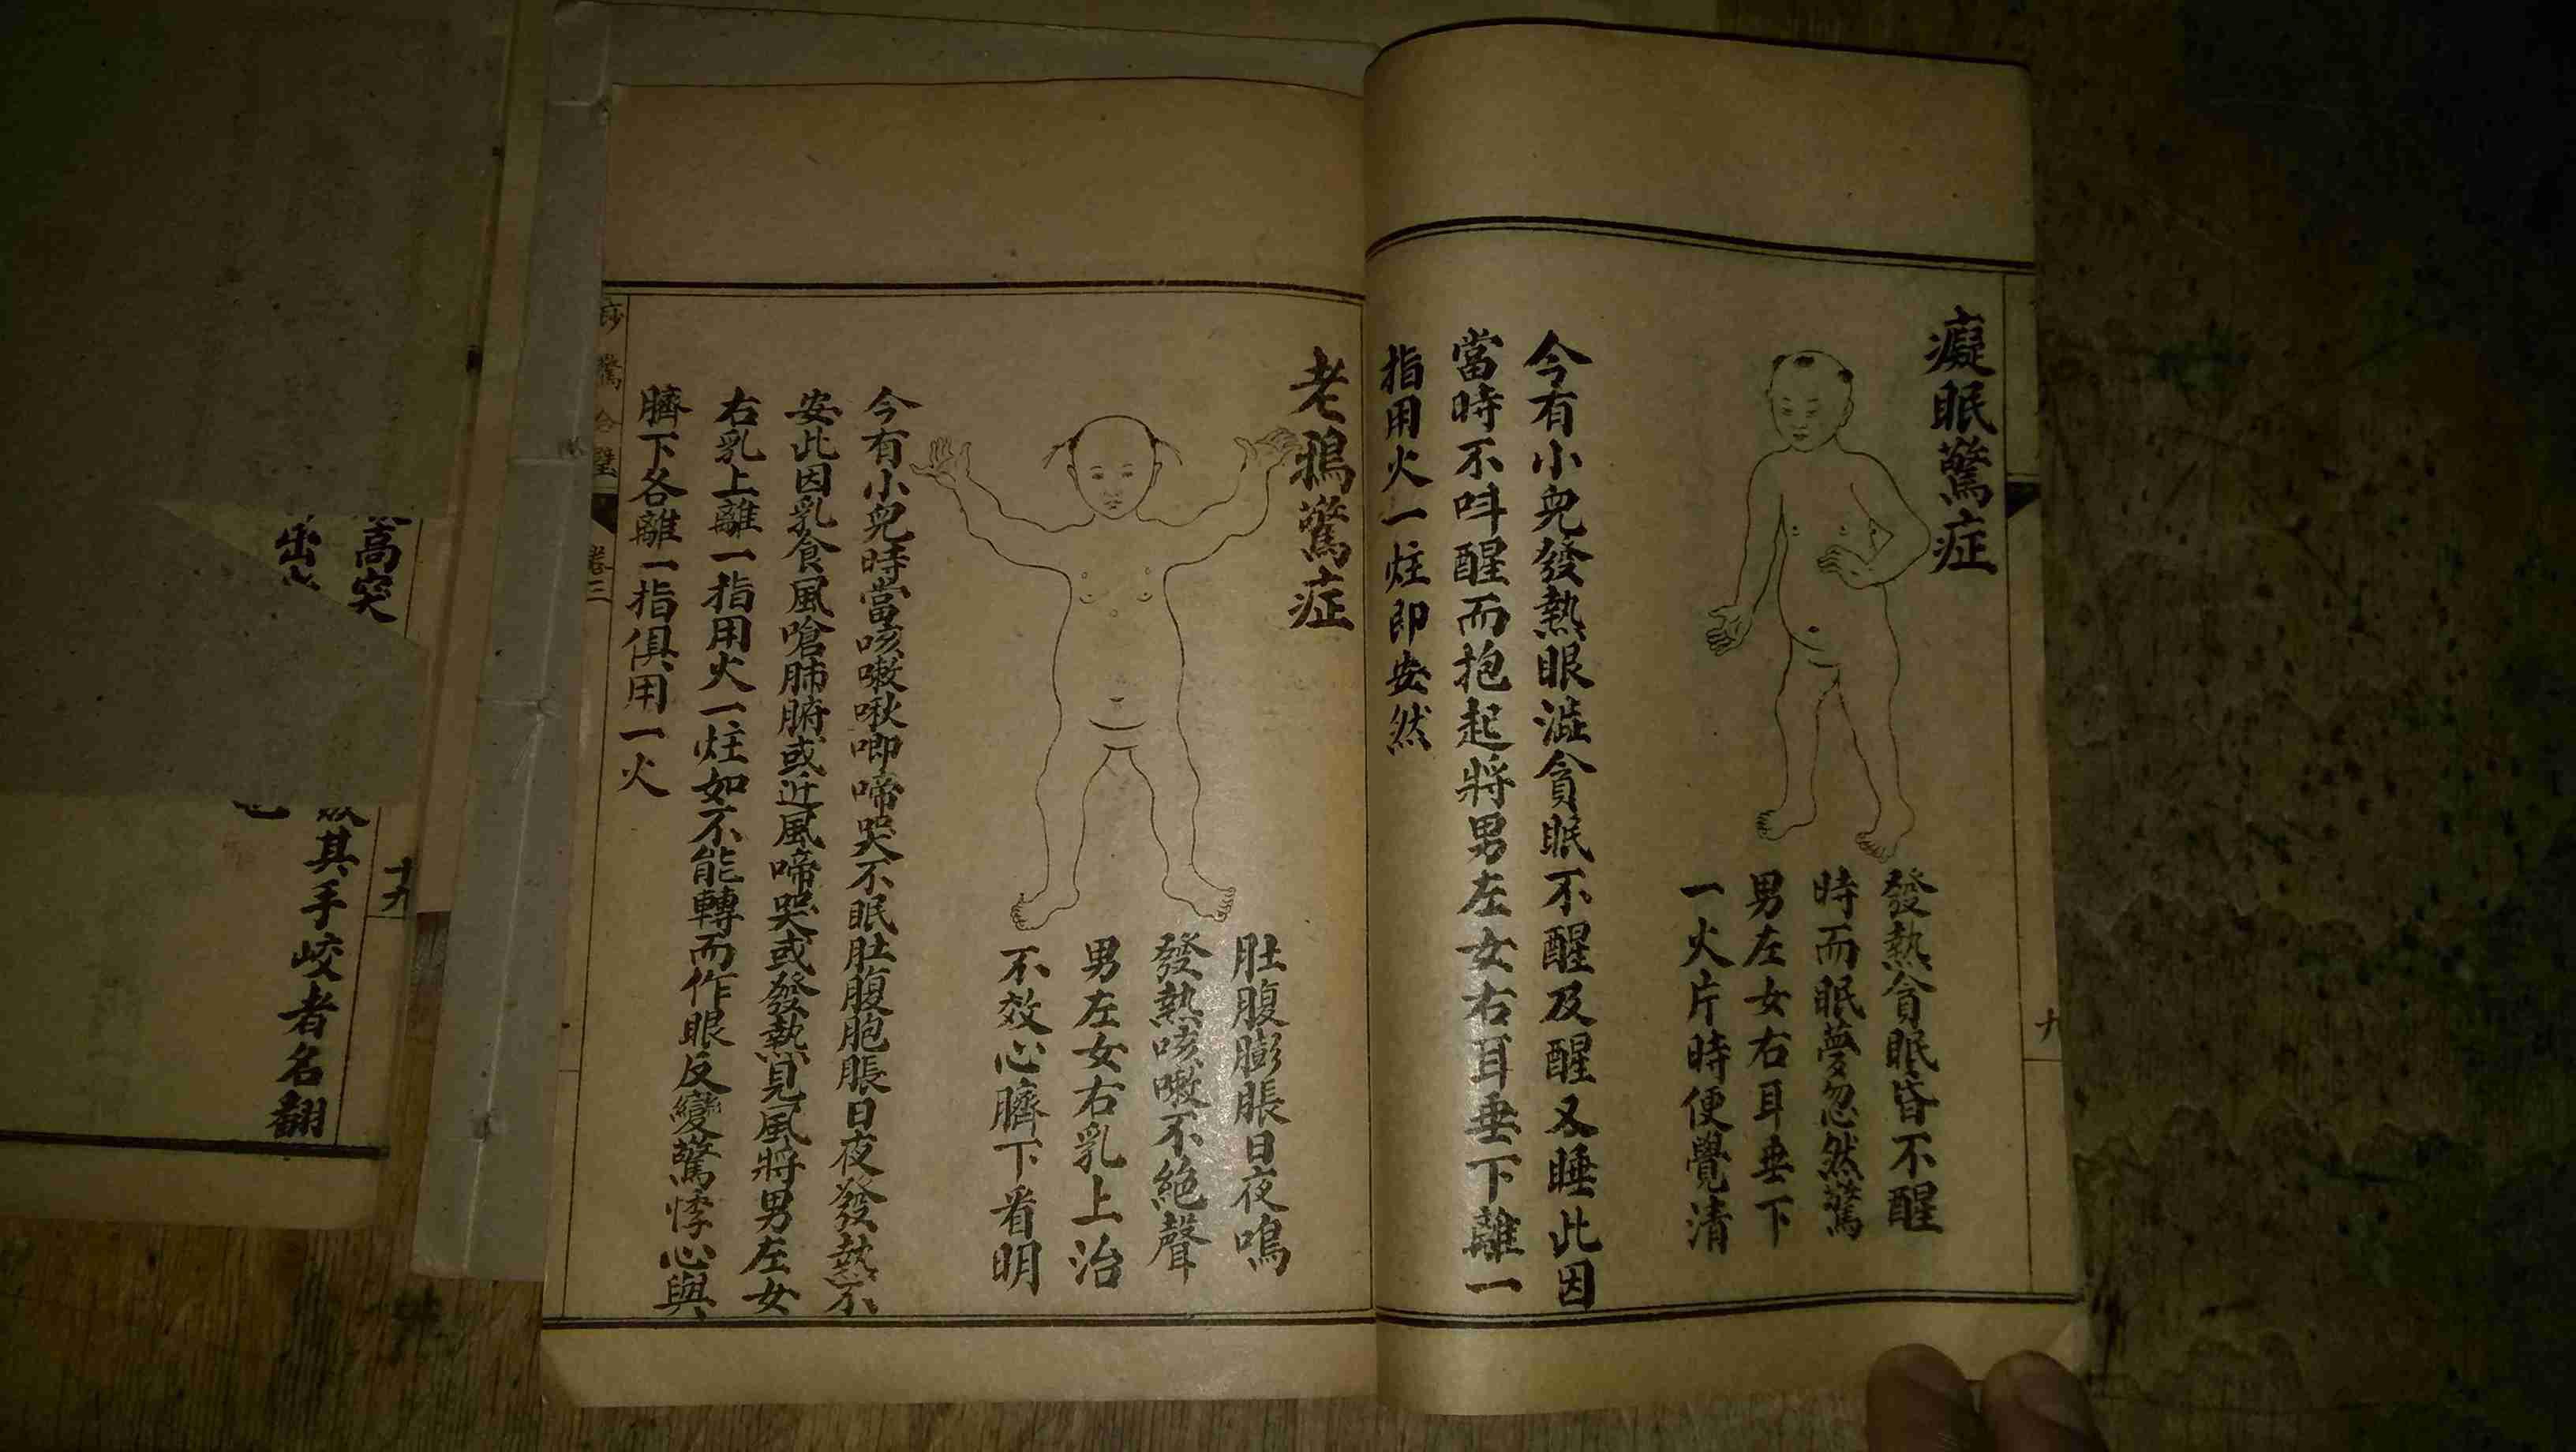 癡眠驚症
發熱貪眠昏不醒
時而眠夢忽然驚
男左女右耳垂下
一火片時便覺清
今有小兒發熱眼澁貪眠不醒及醒又睡此因
當時不呌醒而抱起將男左女右耳垂下離一
指用火一炷即安然
老鴉驚症
肚腹膨脹日夜鳴
發熱咳嗽不絕聲
男左女右乳上治
不效心臍下着明
今有小兒時當咳嗽啾唧啼哭不眠肚腹胞脹日夜發熱不
安此因乳食風嗆肺腑或近風啼哭或發熱見風將男左女
右乳上離一指用火一炷如不能轉而作眼反變驚悸心與
臍下各離一指俱用一火
痧驚合璧
卷三
十九
高突
出
其手咬者名翻